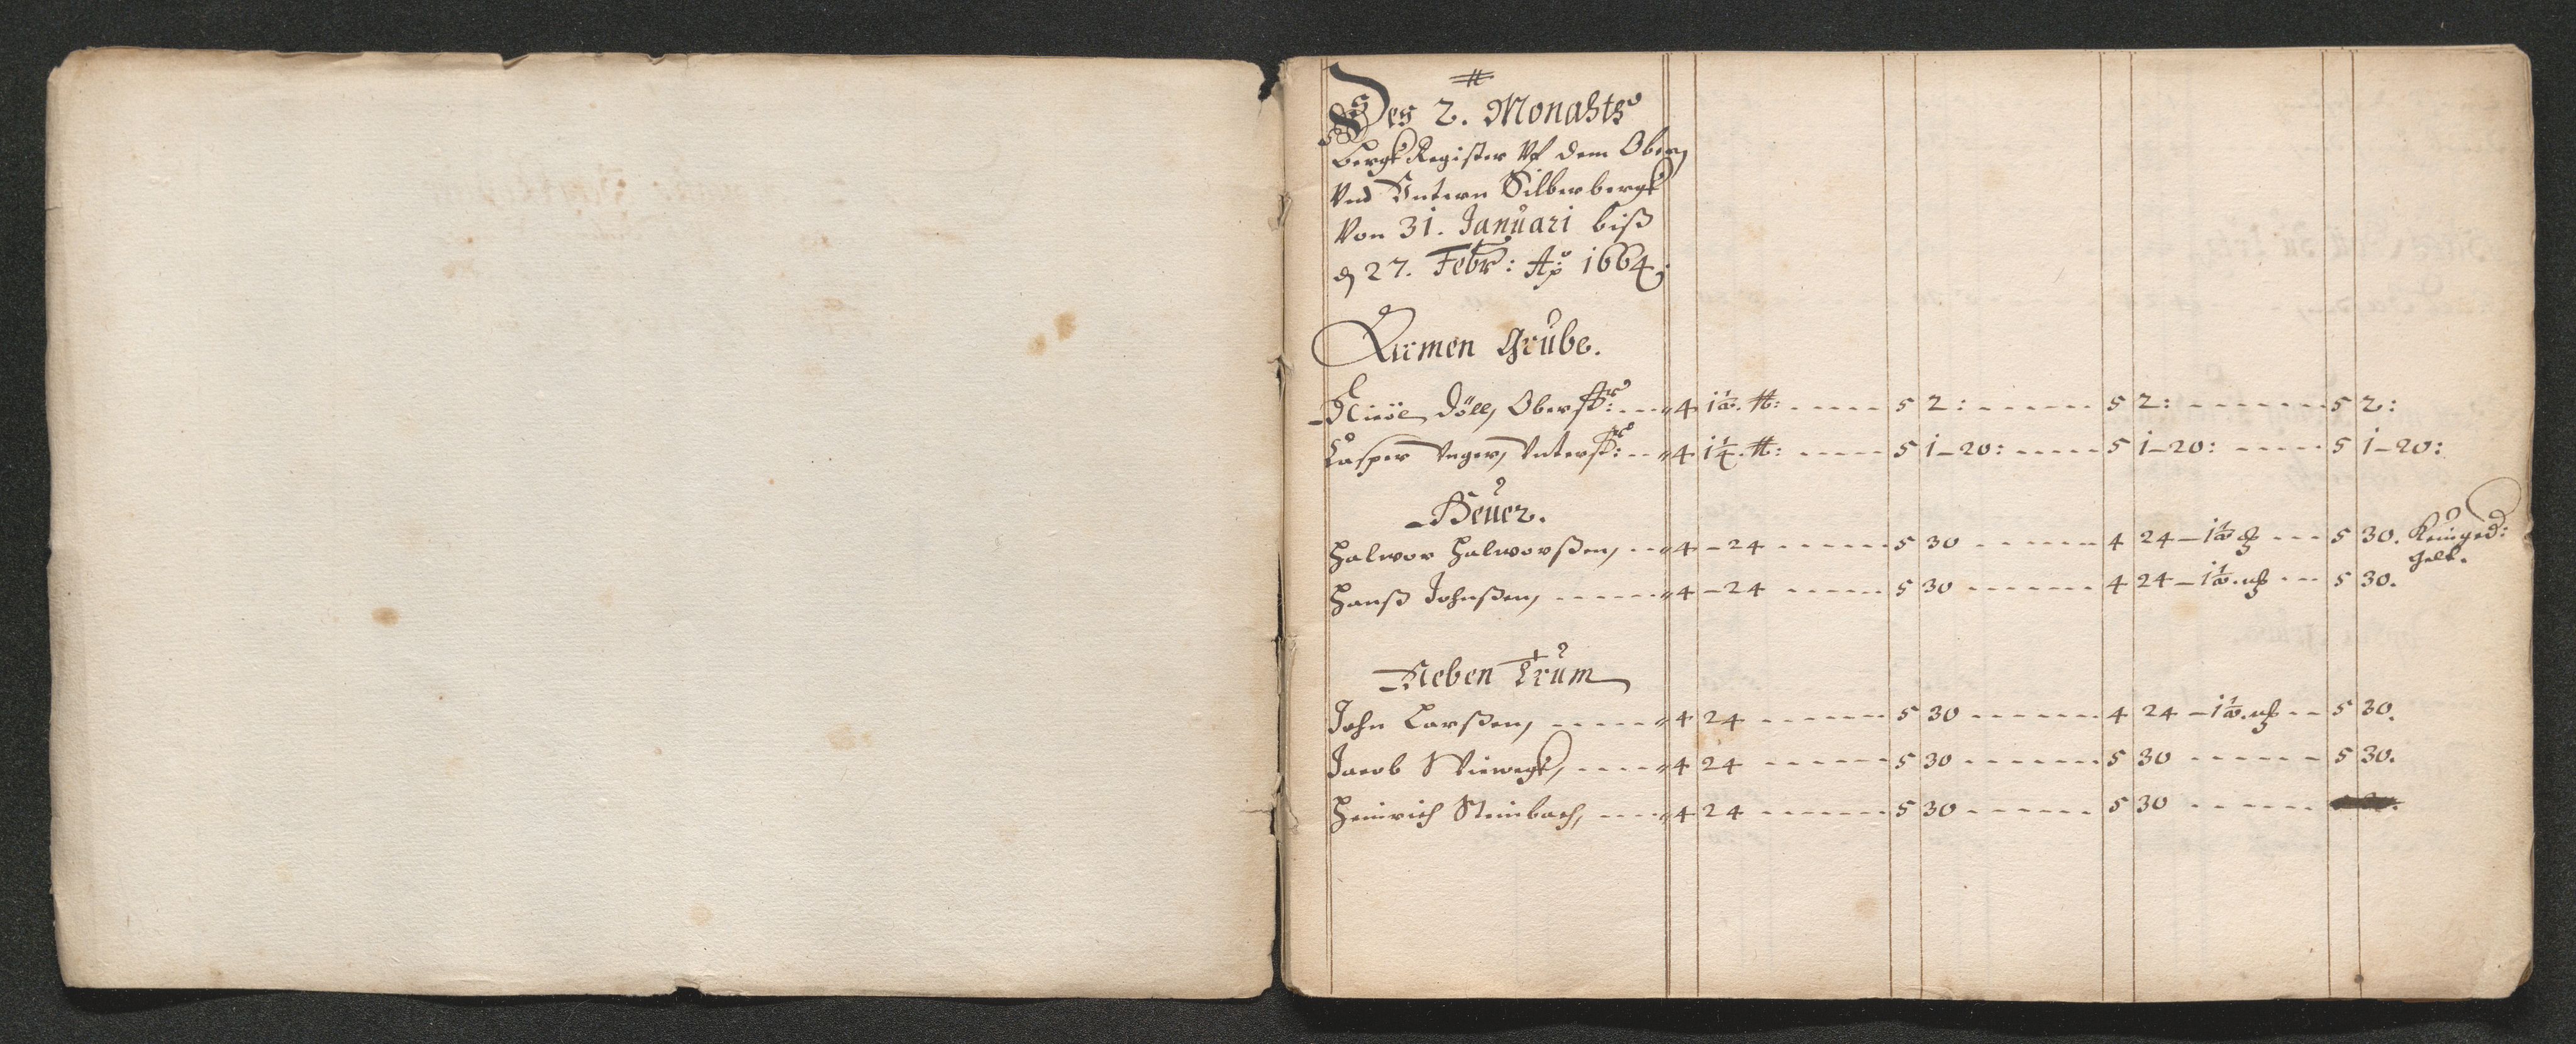 #
Des 2. Monahts
Bergk Register Vf dem Obern,
Vnd Vntern Silberbergk
Von 31. Januari biß
d 27. Febr: Ao 1664.
Armen Grube.
Nicol Döll, Oberstr: 4 1½ tt: 5 2: 5 2: 5 2:
Casper Unger, Unterstr: 4 1¼ tt: 5 1-20: 5 1-20: 5 1-20:
Heuer.
Halwor Halworßen, 4 -24 5 30 4 24-1½ 5 30.
Hanß Johnßen, 4 -24 5 30 4 24-1½ 5 30. gelt.
Neben Trum
John Larßen, 4 24 5 30 4 24-1½ 5 30.
Jacob Viewegk, 4 24 5 30 5 30 5 30.
Heinrich Steinbach, 4 24 5 30 5 30